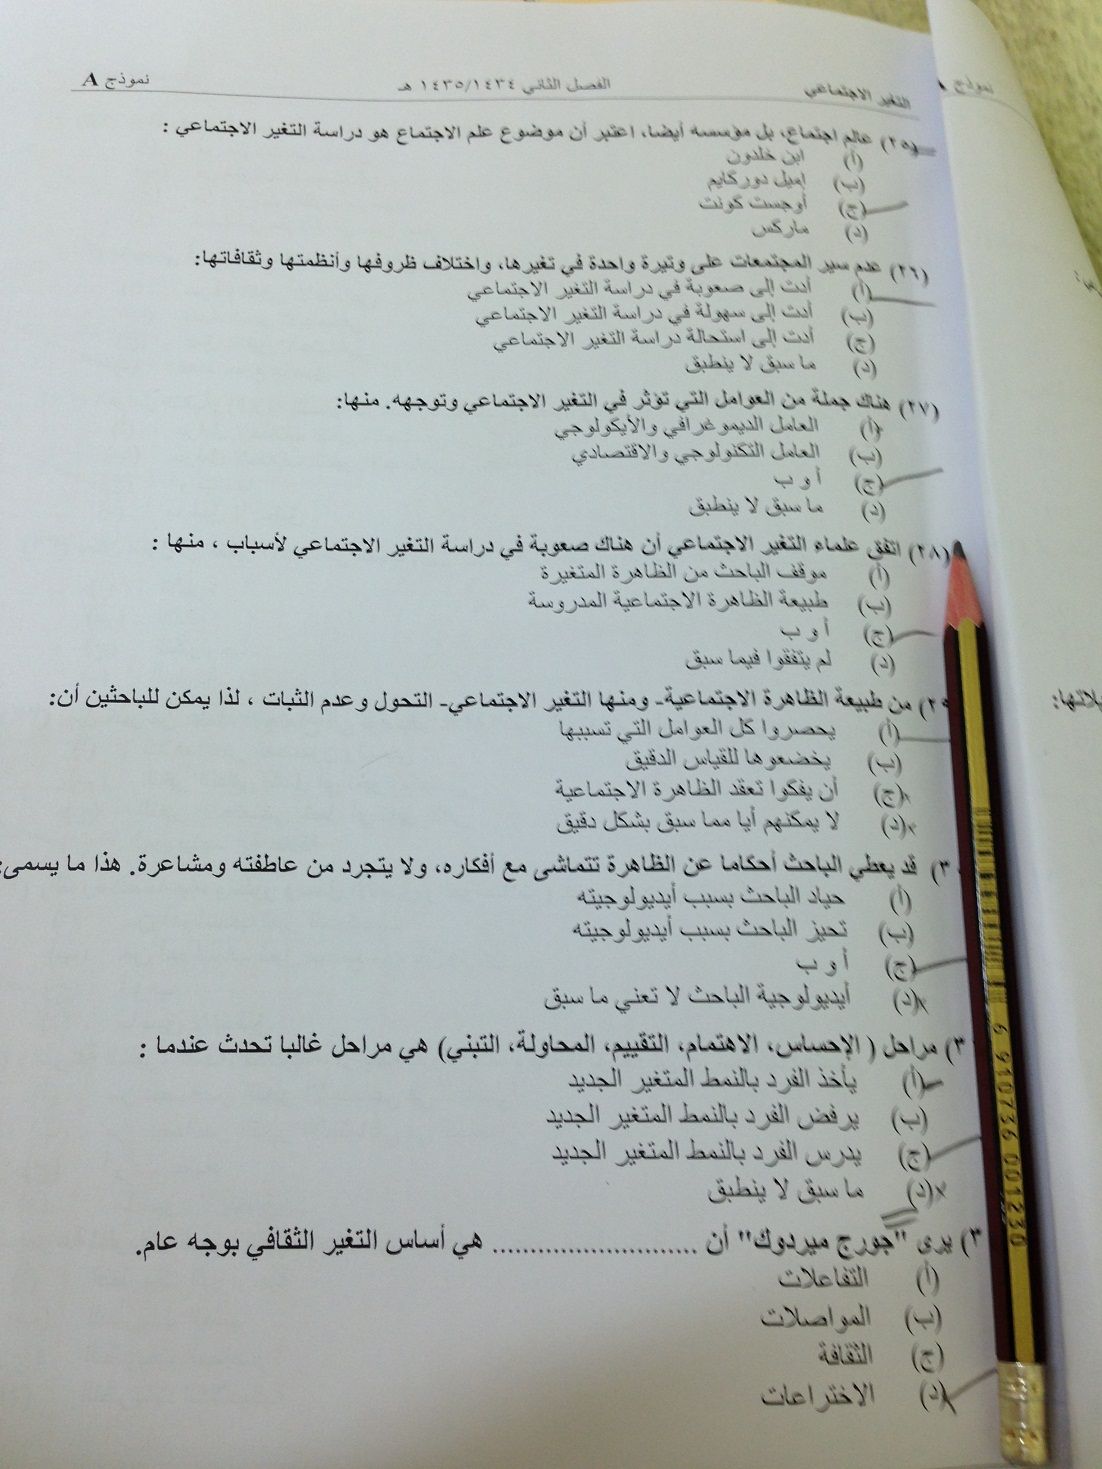 التغير الاجتماعي الفصل الثاني ١٤٣٥/١٤٣٤ هـ نموذج A
نموذج A
٢٥) عالم اجتماع، بل مؤسسه أيضا، اعتبر أن موضوع علم الاجتماع هو دراسة التغير الاجتماعي :
(أ) ابن خلدون
(ب) إميل دوركايم
(ج) أوجست كونت
(د) ماركس
٢٦) عدم سير المجتمعات على وتيرة واحدة في تغيرها، واختلاف ظروفها وأنظمتها وثقافاتها:
(أ) أدت إلى صعوبة في دراسة التغير الاجتماعي
(ب) أدت إلى سهولة في دراسة التغير الاجتماعي
(ج) أدت إلى استحالة دراسة التغير الاجتماعي
(د) ما سبق لا ينطبق
٢٧) هناك جملة من العوامل التي تؤثر في التغير الاجتماعي وتوجهه. منها:
(أ) العامل الديموغرافي والأيكولوجي
(ب) العامل التكنولوجي والاقتصادي
(ج) أ و ب
(د) ما سبق لا ينطبق
٢٨) اتفق علماء التغير الاجتماعي أن هناك صعوبة في دراسة التغير الاجتماعي لأسباب ، منها :
(أ) موقف الباحث من الظاهرة المتغيرة
(ب) طبيعة الظاهرة الاجتماعية المدروسة
(ج) أ و ب
(د) لم يتفقوا فيما سبق
٢٩) من طبيعة الظاهرة الاجتماعية- ومنها التغير الاجتماعي- التحول وعدم الثبات ، لذا يمكن للباحثين أن:
(أ) يحصروا كل العوامل التي تسببها
(ب) يخضعوها للقياس الدقيق
(ج) أن يفكوا تعقد الظاهرة الاجتماعية
(د) لا يمكنهم أيا مما سبق بشكل دقيق
٣) قد يعطي الباحث أحكاما عن الظاهرة تتماشى مع أفكاره، ولا يتجرد من عاطفته ومشاعرة. هذا ما يسمى:
(أ) حياد الباحث بسبب أيديولوجيته
(ب) تحيز الباحث بسبب أيديولوجيته
(ج) أ و ب
(د) أيديولوجية الباحث لا تعني ما سبق
٣) مراحل ( الإحساس، الاهتمام، التقييم، المحاولة، التبني) هي مراحل غالبا تحدث عندما :
(أ) يأخذ الفرد بالنمط المتغير الجديد
(ب) يرفض الفرد بالنمط المتغير الجديد
(ج) يدرس الفرد بالنمط المتغير الجديد
(د) ما سبق لا ينطبق
٣) يرى "جورج ميردوك" أن ........................... هي أساس التغير الثقافي بوجه عام.
(أ) التفاعلات
(ب) المواصلات
(ج) الثقافة
(د) الاختراعات
6 910736 001230